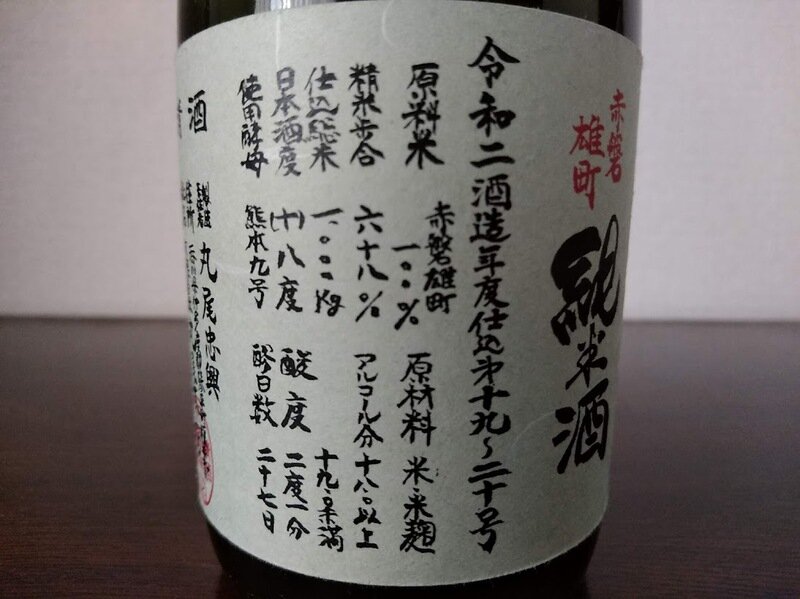 赤磐
雄町
純米酒
令和二酒造年度仕込第十九～二十号
原料米 赤磐雄町
一〇〇% 原材料 米・米麹
精米歩合 六十八% アルコール分 十八・〇以上
十九・〇未満
仕込総米 一、〇〇〇kg
日本酒度 (十)八度 酸度 二度一分
使用酵母 熊本九号 醪日数 二十七日
酒
丸尾忠興